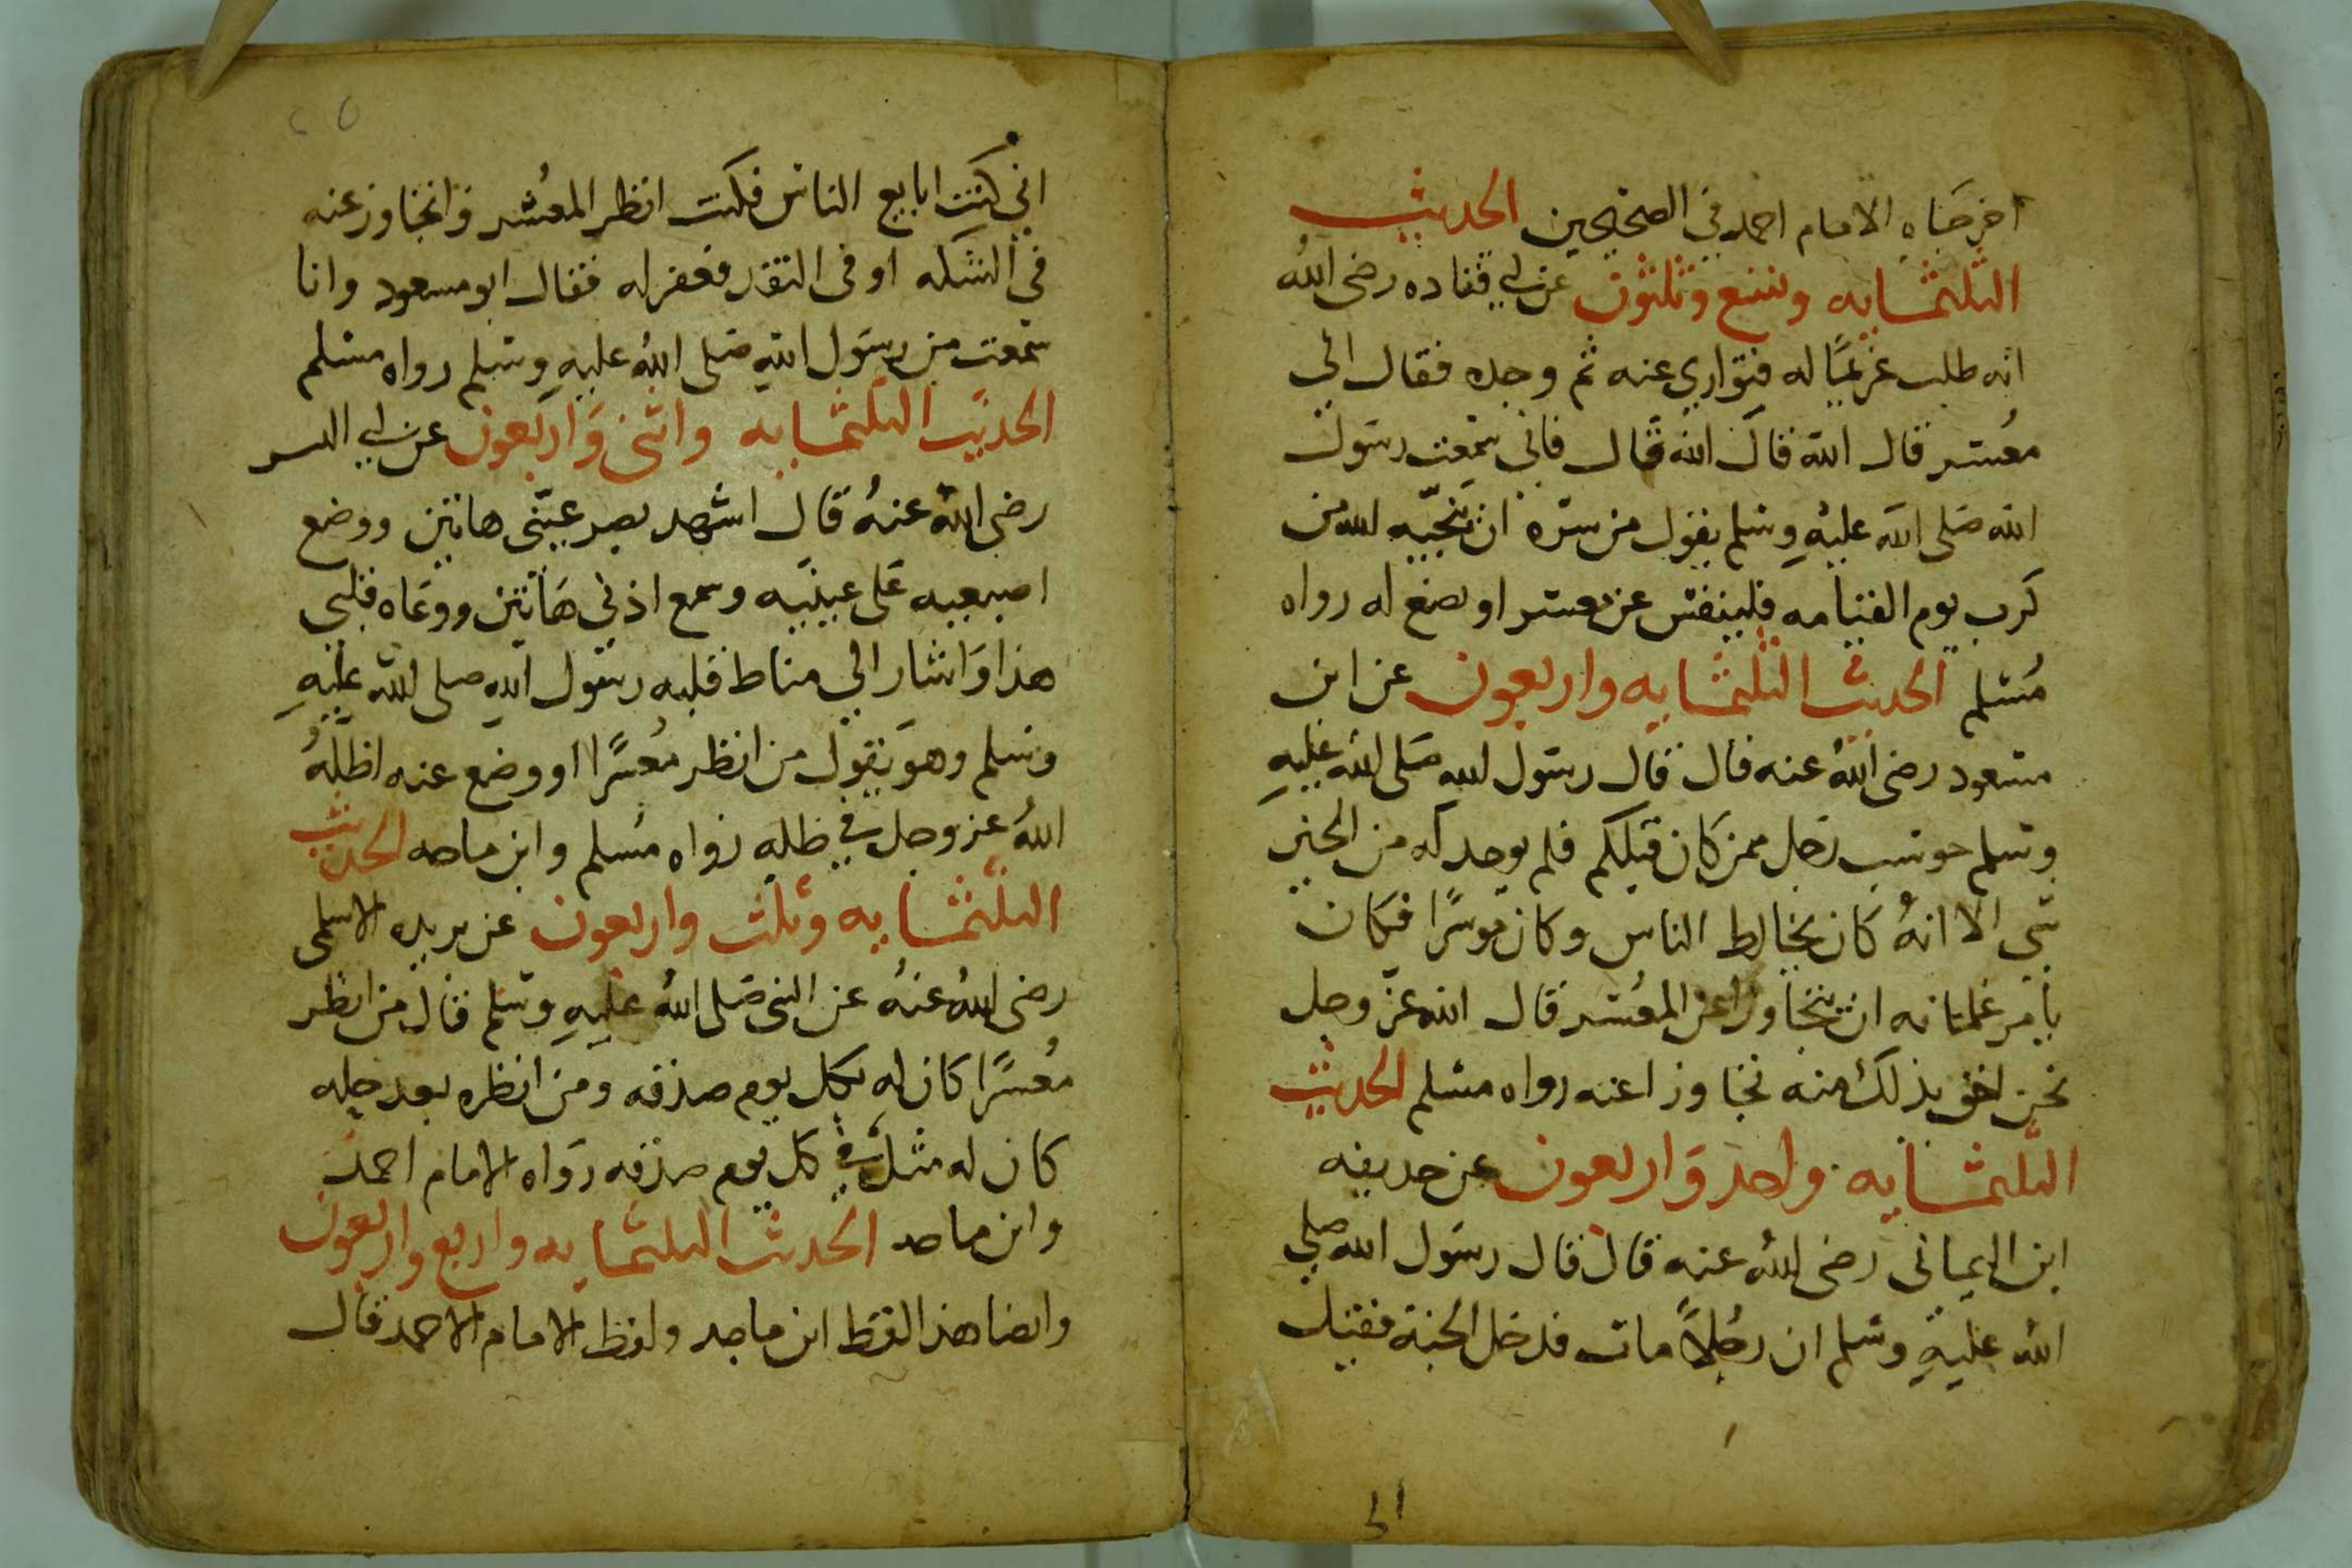 اخرجاه الامام احمد في الصحيحين الحديث
الثلثمايه وتسع وثلثون عن ابي قتاده رضي الله
انه طلب غريمًا له فتواري عنه ثم وجده فقال اني
معسر قال الله قال الله قال فاني سمعت رسول
الله صلى الله عليه وسلم يقول من سره ان ينجيه الله من
كرب يوم القيامه فلينفس عن معسر او يضع له رواه
مسلم الحديث الثلثمايه واربعون عن ابن
مسعود رضي الله عنه قال قال رسول الله صلى الله عليه
وسلم حوسب رجل ممن كان قبلكم فلم يوجد له من الخير
شي الا انهُ كان يخالط الناس وكان موسرًا فكان
يامر غلمانه ان يتجاوزا عن المعسر قال الله عز وجل
نحن احق بذلك منه تجاوزا عنه رواه مسلم الحديث
الثلثمايه واحد واربعون عن حديفه
ابن اليماني رضي الله عنه قال قال رسول الله صلي
الله عليه وسلم ان رجلاً مات فدخل الجنة فقيل
اني كنت ابايع الناس فكنت انظر المعُسر واتجاوز عنه
في السكه او في النقد فغفر له فقال ابو مسعود وانا
سمعت من رسول الله صلى الله عليه وسلم رواه مسلم
الحديث الثلثمايه واثنى واربعون عن ابي اليسر
رضي الله عنهُ قال اشهد بصر عينّى هاتين ووضع
اصبعيه على عينيه وسمع اذني هاتين ووعاه قلبي
هذا واشار الي مناط قلبه رسول الله صلى الله عليه
وسلم وهو يقول من انظر معُسرًا او وضع عنه اظلّهُ
اللهُ عز وجل في ظله رواه مُسلم وابن ماجه الحديث
الثلثمايه وثلث واربعون عن بريده الاسلمى
رضي اللهُ عنهُ عن النبي صلى اللهُ عليه وسلم قال من انظر
معُسرًا كان له بكل يوم صدقه ومن انظره بعد حله
كان له مثله في كل يوم صدقه رواه الامام احمد
وابن ماجه الحديث الثلثمايه واربع واربعون
وايضا هذا لفظ ابن ماجه ولفظ الامام الاحمد قال